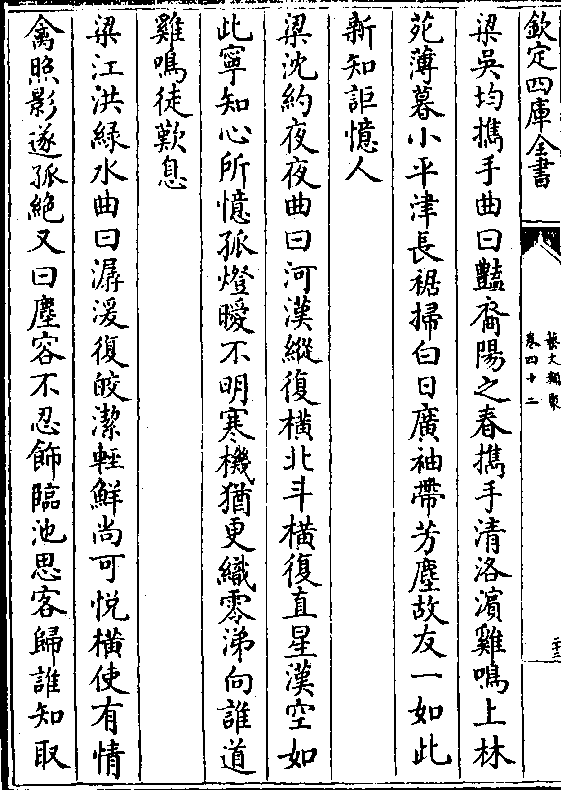 欽定四庫全書
藝文類聚
卷四十二
梁吳均攜手曲曰豔裔陽之春攜手清洛濱雞鳴上林
苑薄暮小平津長裾掃白日廣袖帶芳塵故友一如此
新知詎憶人
梁沈約夜夜曲曰河漢縱復横北斗横復直星漢空如
此寧知心所憶孤燈曖不明寒機猶更織零涕向誰道
雞鳴徒歎息
梁江洪緑水曲曰潺湲復皎潔輕鮮尚可悦横使有情
禽照影遂孤絶又曰塵容不忍飾臨池思客歸誰知取